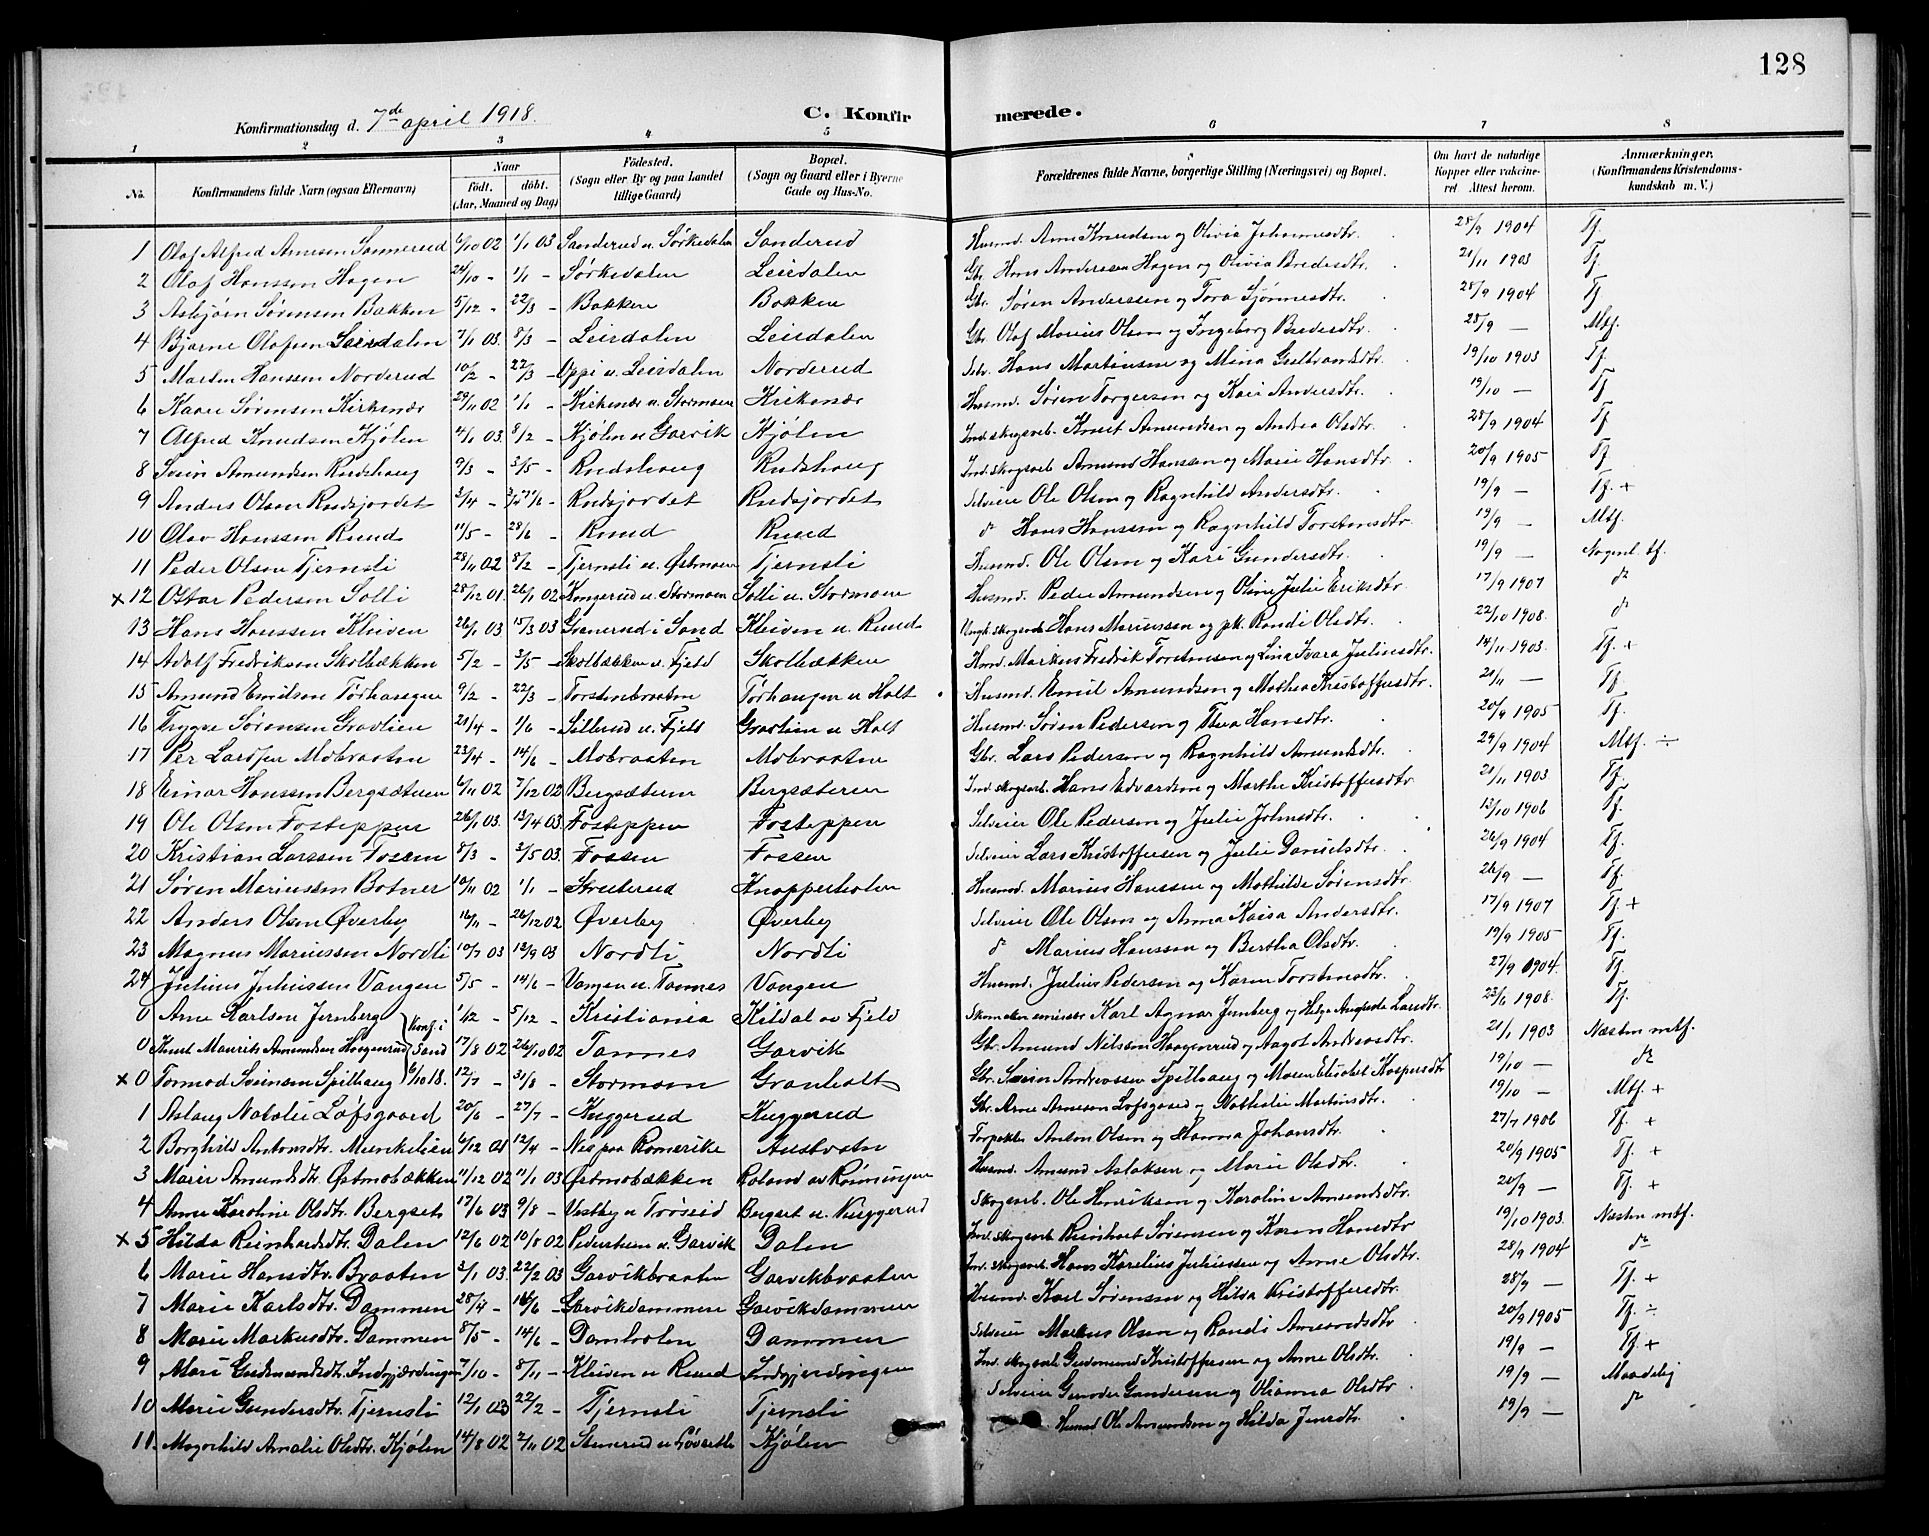 128
Konfirmationsdag d. 7de april 1918.
C. Konfirmerede.
1 2 3 4 5 6 7 8
No. Konfirmandens fulde Navn (ogsaa Efternavn) Naar født. døbt. (Aar, Maaned og Dag) Fødested. (Sogn eller By og paa Landet tillige Gaard) Bopæl. (Sogn og Gaard eller i Byerne Gade og Hus-No. Forældrenes fulde Navne, borgerlige Stilling (Næringsvei) og Bopæl. Om havt de naturlige Kopper eller vakcineret Attest herom. Anmærkninger. (Konfirmandens Kristendomskundskab m. V.)
1 Olaf Alfred Arnesen Sannerud 6/10 02 1/1 03 Sanderud u. Sørkedalen Sanderud Husmd. Arne Knudsen og Olivia Johannesdtr. 28/9 1904 Tf.
2 Olaf Hanssen Hagen 24/10 - 1/1 - Sørkedalen Leirdalen Gbr. Hans Anderssen Hagen og Olivia Bredesdtr. 21/11 1903 Tf.
3 Asbjørn Sørensen Bakken 5/12 - 22/3 - Bakken Bakken Gbr. Søren Anderssen og Tora Sjønnesdtr. 28/9 1904 Tf
4 Bjarne Olafsen Leirdalen 7/1 03. 8/3 - Leirdalen Leirdalen Gbr. Olaf Marius Olsen og Ingeborg Bredesdtr. 28/9 — Mtf.
5 Marten Hanssen Norderud 10/2 - 22/3 - Oppi u. Leirdalen Norderud Selv. Hans Martinsen og Mina Gulbrandsdtr. 19/10 1903 Tf.
6 Kaare Sørensen Kirkenær 29/11 02 1/1 - Kirkenær u. Stormoen Kirkenær Husmd. Søren Torgersen og Kari Andersdtr. 19/10 — Tf
7 Alfred Knudsen Kjølen 4/1 03. 8/2 - Kjølen u. Garvik Kjølen Ind. skogsarb. Knut Amundsen og Andrea Olsdtr. 28/9 1904 Tf.
8 Svein Amundsen Rudshaug 9/3 - 3/5 - Rudshaug Rudshaug Ind. skogsarb. Amund Hanssen og Marie Hansdtr. 20/9 1905 Tf.
9 Anders Olsen Rudsjordet 3/4 - Rudsjordet Rudsjordet Selveier Ole Olsen og Ragnhild Andersdtr. 19/9 — Tf. +
10 Olav Hanssen Ruud 11/5 - 28/6 - Ruud Ruud do Hans Hanssen og Ragnhild Torstensdtr. 19/9 — Mtf.
11 Peder Olsen Tjernsli 28/11 02 8/2 - Tjernsli u. Østmoen Tjernsli Husmd. Ole Olsen og Kari Gundersdtr. 19/9 — Nogenl. tf.
x 12 Ottar Pedersen Solli 28/12 01. 26/1 02 Kongerud u. Stormoen Solli u. Stormoen Husmd. Peder Amundsen og Oline Julie Eriksdtr. 17/9 1907 do
13 Hans Hanssen Kleiven 26/1 03 15/3 03 Granerud i Sand Kleiven u. Ruud Hans Mariussen og pk. Randi Olsdtr. 22/10 1908. do
14 Adolf Fredriksen Skolbækken 5/2 - 3/5 - Skolbækken u. Fjeld Skolbækken Husmd. Markus Fredrik Torstensen og Lina Juliusdtr. 14/11 1903 Tf. +
15 Amund Emilsen Tørhaugen 9/2 - 22/3 - Torstenbraaten Tørhaugen u. Holt Husmd. Emil Amundsen og Mathea Kristoffersdtr. 21/11 — Tf.
16 Trygve Sørensen Gravlien 21/4 - 1/6 - Sillerud u. Fjeld Gravlien u. Holt Husmd. Søren Pedersen og Thea Hansdtr. 20/9 1905 Tf.
17 Per Larssen Mobraaten 23/4 - 14/6 - Mobraaten Mobraaten Gbr. Lars Pedersen og Ragnhild Amundsdtr. 29/9 1904 Mtf. ÷
18 Einar Hanssen Bergsæteren 6/11 02 7/12 02 Bergsæteren Bergsæteren Ind. skogsarb. Hans Edvardsen og Marthe Kristoffersdtr. 21/11 1903 Tf.
19 Ole Olsen Fosteppen 26/1 03. 13/4 03. Fosteppen Fosteppen Selveier Ole Pedersen og Julie Johnsdtr. 13/10 1906 Tf.
20 Kristian Larssen Fossen 8/3 - 3/5 03. Fossen Fossen Selveier Lars Kristoffersen og Julie Danielsdtr. 26/9 1904 Tf.
21 Søren Mariussen Botner 10/11 02 1/1 - Struterud Knapperholen Husmd. Marius Hanssen og Mathilde Sørensdtr. 26/9 — Tf.
22 Anders Olsen Øverby 16/11 - 26/12 02 Øverby Øverby Selveier Ole Olsen og Anna Kaisa Andersdtr. 17/9 1907 Tf. +
23 Magnus Mariussen Nordli 10/7 03 12/9 03 Nordli Nordli do Marius Hanssen og Bertha Olsdtr. 19/9 1905 Tf.
24 Julius Juliussen Vangen 5/5 - 14/6 - Vangen u. Tannes Vangen Husmd. Julius Pedersen og Karen Torstensdtr. 27/9 1904. Tf.
0 Arne Karlsen Jernberg 1/12 - 5/12 - Kristiania Kildal av Fjeld Karl Agnar Jernberg og Helga Augusta Larsdtr. 23/6 1908. Tf.
0 Knut Maurits Amundsen Haagenrud 17/8 02 26/10 02 Tannes Garvik Gbr. Amund Nilssen Haagenrud og Aagot Andreasdtr. 21/1 1903 Næsten mtf.
Konf. i Sand 6/10 18.
x 0 Tormod Sveinsen Spilhaug 12/7 - 31/8 - Stormoen Granholt Gbr. Svein Andreassen Spilhaug og Maren Elisabet Kaspersdtr 19/10 — do
1 Aslaug Natalie Løfsgaard 20/6 - 27/7 - Kuggerud Kuggerud Gbr. Arne Arnesen Løfsgaard og Nathalie Martinsdtr. 19/10 — Mtf. +
2 Borghild Antonsdtr. Munkelien 6/12 01 12/4 - Nes paa Romerike Austvatn Forpakter Anton Olsen og Hanna Johansdtr. 27/7 1906 Tf. +
3 Marie Amundsdtr. Østmobækken 11/12 02 11/1 03 Østmobækken Roland av Rønningen Husmd. Amund Aslaksen og Marie Olsdtr. 20/9 1905 Tf. +
4 Anne Karoline Olsdtr. Bergset 17/6 03 9/8 - Vestby u. Torøseid Bergset u. Kuggerud Skogsarb. Ole Henriksen og Karoline Amundsdtr. 20/9 — Tf. +
x 5 Hilda Reinhardsdtr. Dalen 12/6 02 10/8 02 Pedersheim u. Garvik Dalen Ind. skogsarb Reinhart Sørensen og Karen Hansdtr 19/10 1903. Næsten mtf.
6 Marie Hansdtr. Braaten 3/1 03. 22/2 03 Garvikbraaten Garvikbraaten Ind. skogsarb Hans Karelius Juliussen og Anne Olsdtr. 28/9 1904 do
7 Marie Karlsdtr. Dammen 28/4 - 14/6 - Garvikdammen Garvikdammen Husmd Karl Sørensen og Hilda Kristoffersdtr. 28/9 — Tf. +
8 Marie Markusdtr. Dammen 8/5 - 14/6 - Damholen Dammen Selveier Markus Olsen og Randi Amundsdtr. 20/9 1905 Tf. ÷
9 Mari Gudmundsdtr. Indgjærdingen 7/10 - 8/11 - Kleiven u. Ruud Indgjerdingen Ind. skogsarb Gudmund Kristoffersen og Anne Olsdtr. 19/9 — Tf. +
10 Marie Gundersdtr. Tjernsli 12/1 03 22/2 - Tjernsli Tjernsli Selveier Gunder Gundersen og Olianna Olsdtr 19/9 — Maadelig
11. Magnhild Amalie Olsdtr. Kjølen 14/8 02 2/11 02 Kjølen Husmd Ole Amundsen og Hilda Jensdtr. 19/9 — do